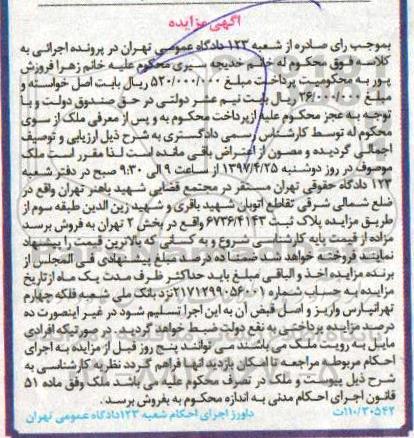 آگهی مزایده
بموجب رای صادره از شعبه ۱۲۳ دادگاه عمومی تهران در پرونده اجرائی به
کلاسه فوق محکوم له خانم خدیجه سیری محکوم علیه خانم زهرا فروزش
پور به محکومیت پرداخت مبلغ ۵۲۰/۰۰۰/۰۰۰ ریال بابت اصل خواسته و
مبلغ ۲۶/۰۰۰/۰۰۰ ریال بابت نیم عشر دولتی در حق صندوق دولت و با
توجه به عجز محکوم علیه ازپرداخت محکوم به و پس از معرفی ملک از سوی
محکوم له توسط کارشناس رسمی دادگستری به شرح ذیل ارزیابی و توصیف
اجمالی گردیده و مصون از اعتراض باقی مانده است لذا مقرر است ملک
موصوف در روز دوشنبه ۱۳۹۷/۴/۲۵ از ساعت ۹ الی ۹:۳۰ صبح در دفتر شعبه
۱۲۳ دادگاه حقوقی تهران مستقر در مجتمع قضایی شهید باهنر تهران واقع در
ضلع شمالی شرقی تقاطع اتوبان شهید باقری و شهید زین الدین طبقه سوم از
طریق مزایده پلاک ثبت ۶۷۳۶/۴۱۴۳ واقع در بخش ۲ تهران به فروش برسد
مزاده از قیمت پایه کارشناسی شروع و به کسانی که بالاترین قیمت را پیشنهاد
نمایند فروخته خواهد شد ضمنا ده درصد مبلغ پیشنهادی فی المجلس از
برنده مزایده اخذ و الباقی مبلغ باید حداکثر ظرف مدت یک ماه از تاریخ
مزایده به حساب شماره ۲۱۷۱۲۹۹۰۵۶۰۰۱ نزد بانک ملی شعبه فلکه چهارم
تهرانپارس واریز و اصل قبض آن به این اجرا تسلیم شود در غیر اینصورت ده
درصد مزایده پرداختی به نفع دولت ضبط خواهد گردید. در صورتیکه افرادی
مایل به رویت ملک می باشند می توانند پنج روز قبل از مزایده به اجرای
احکام مربوطه مراجعه تا امکان بازدید آنها فراهم گردد نظریه کارشناسی به
شرح ذیل پیوست و ملک در تصرف محکوم علیه می باشد ملک وفق ماده ۵۱
قانون اجرای احکام مدنی به اندازه محکوم به بفروش برسد.
۱۱۰/۳۰۵۴۲ت داورز اجرای احکام شعبه ۱۲۳ دادگاه عمومی تهران